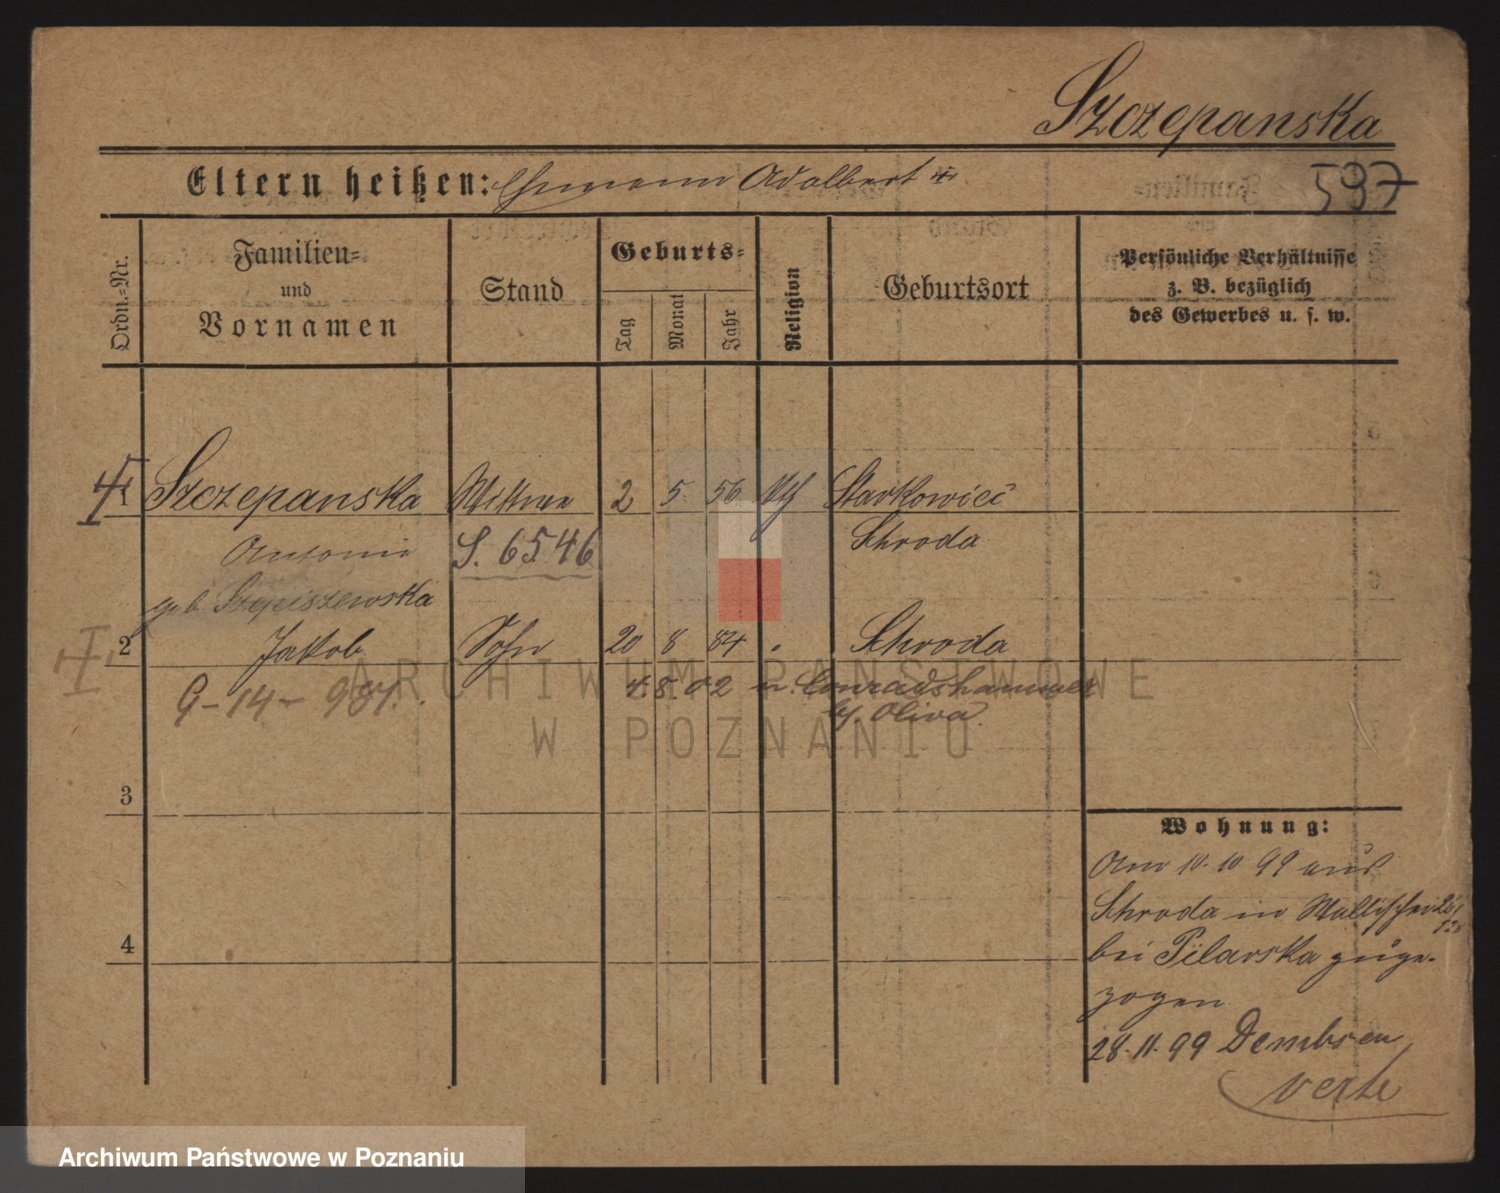 Szczepanska
Eltern heißen: Ehemann Adalbert
597
Ordn.-Nr.
Familien-
und
Vornamen
Stand
Geburts-
Tag
Monat
Jahr
Religion
Geburtsort
Persönliche Verhältnisse
z. B. bezüglich
des Gewerbes u. s. w.
1 Szczepanska Wittwe 2 5 56 Starkowiec
Antonie S. 6546 Schroda
geb.
2 Jakob Sohn 20 8 84 Schroda
G-14- 4.8.02 n. Conradshammer
b/ Oliva.
3
4
Wohnung:
Am 10.10.99 aus
Schroda in Wallischei
bei Pilarska zuge-
zogen
28.11.99 Dembsen
verte
ARCHIWUM PAŃSTWOWE
W POZNANIU
Archiwum Państwowe w Poznaniu